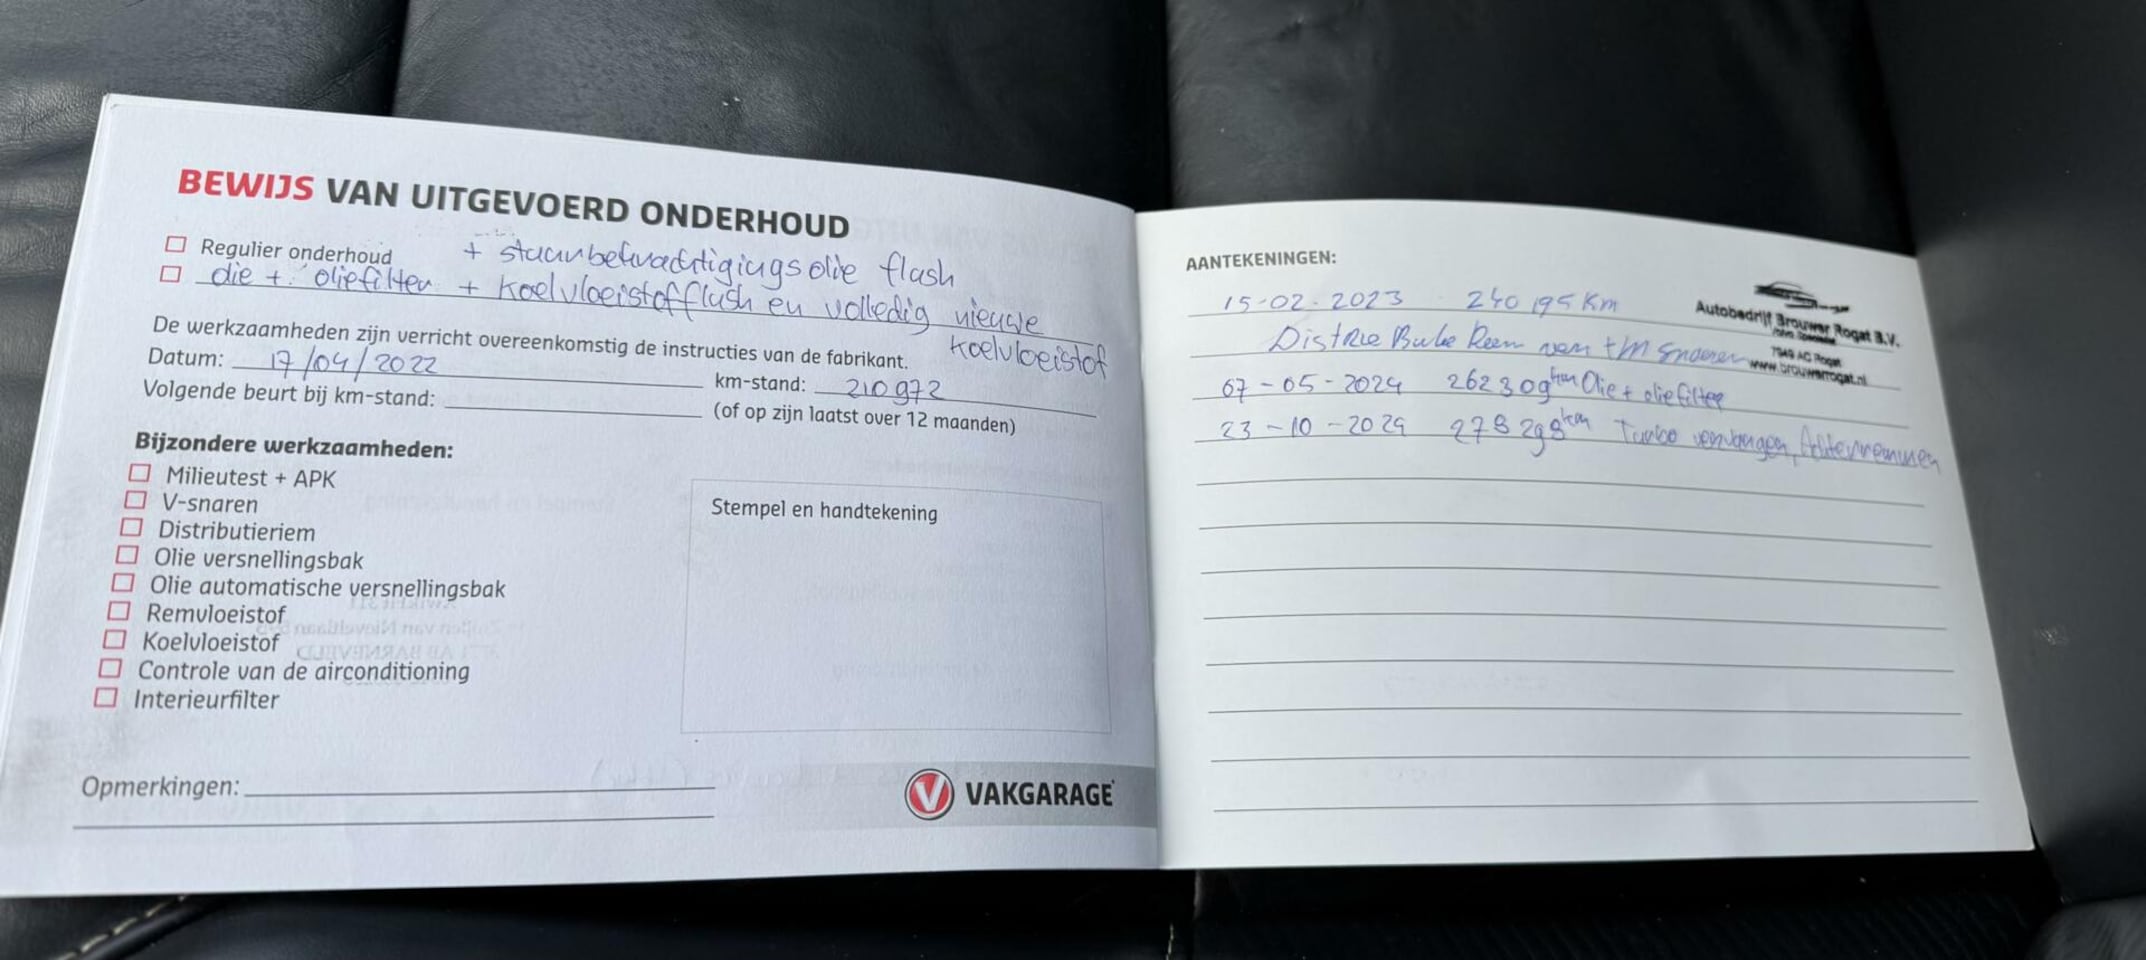 BEWIJS VAN UITGEVOERD ONDERHOUD
Regulier onderhoud + stuurbekrachtigingsolie flush
olie + oliefilter + koelvloeistofflush en volledig nieuwe
koelvloeistof
De werkzaamheden zijn verricht overeenkomstig de instructies van de fabrikant.
Datum: 17/04/2022 km-stand: 210972
Volgende beurt bij km-stand: (of op zijn laatst over 12 maanden)
Bijzondere werkzaamheden:
Milieutest + APK
V-snaren
Distributieriem
Olie versnellingsbak
Olie automatische versnellingsbak
Remvloeistof
Koelvloeistof
Controle van de airconditioning
Interieurfilter
Stempel en handtekening
Opmerkingen:
VAKGARAGE
AANTEKENINGEN:
Autobedrijf Brouwer Rogat B.V.
7949 AC Rogat
www.brouwerrogat.nl
15-02-2023 240195 Km
Distrie
07-05-2024 262309 km Olie + oliefilter
23-10-2024 278298 km Turbo vervangen, Achterremmen